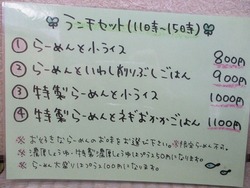 ランチセット(11時~15時)
① らーめんと小ライス 800円
② らーめんといわし削りぶしごはん 900円
③ 特製らーめんと小ライス 1000円
④ 特製らーめんとネギおかかごはん 1100円
※お好きならーめんのお味をお選び下さい。
※濃厚しょうゆ・特製濃厚しょうゆはプラス50円になります。
※らーめん大盛りはプラス100円になります。